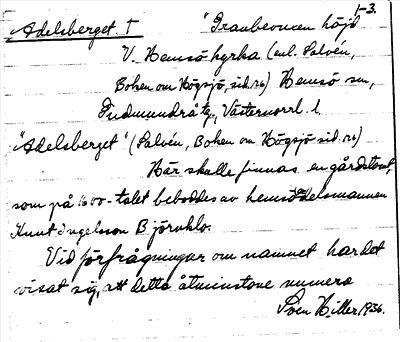 1-3.
Adelsberget. T "Granbevuxen höjd
V. Hemsö kyrka (enl. Salvén,
Boken om Högsjö, sid. 26) Hemsö sn,
Gudmundrå tg., Västernorrl. l.
"Adelsberget" (Salvén, Boken om Högsjö sid. 26)
Här skulle finnas en gårdstomt,
som på 1600-talet beboddes av hemsöadelsmannen
Knut Ingelsson Björnklo.
Vid förfrågningar om namnet har det
visat sig, att detta åtminstone numera
Sven Hiller 1936.